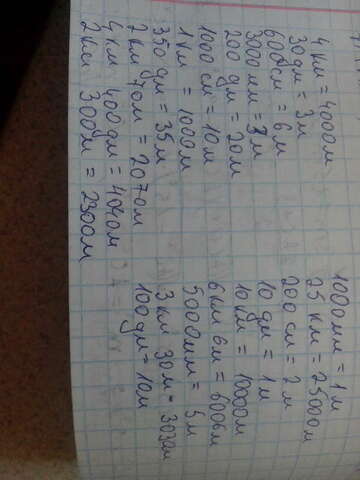 4 км = 4000м
30дм = 3м
600см = 6м
3000мм = 3м
200 дм = 20м
1000 см = 10м
1 км = 1000м
350 дм = 35м
2 км 70м = 2070м
4 км 400дм = 4040м
2 км 300м = 2300м
1000мм = 1м
25 км = 25000м
200 см = 2м
10 дм = 1м
10 км = 10000м
6 км 6м = 6006м
5000мм = 5м
3 км 30м = 3030м
100дм = 10м